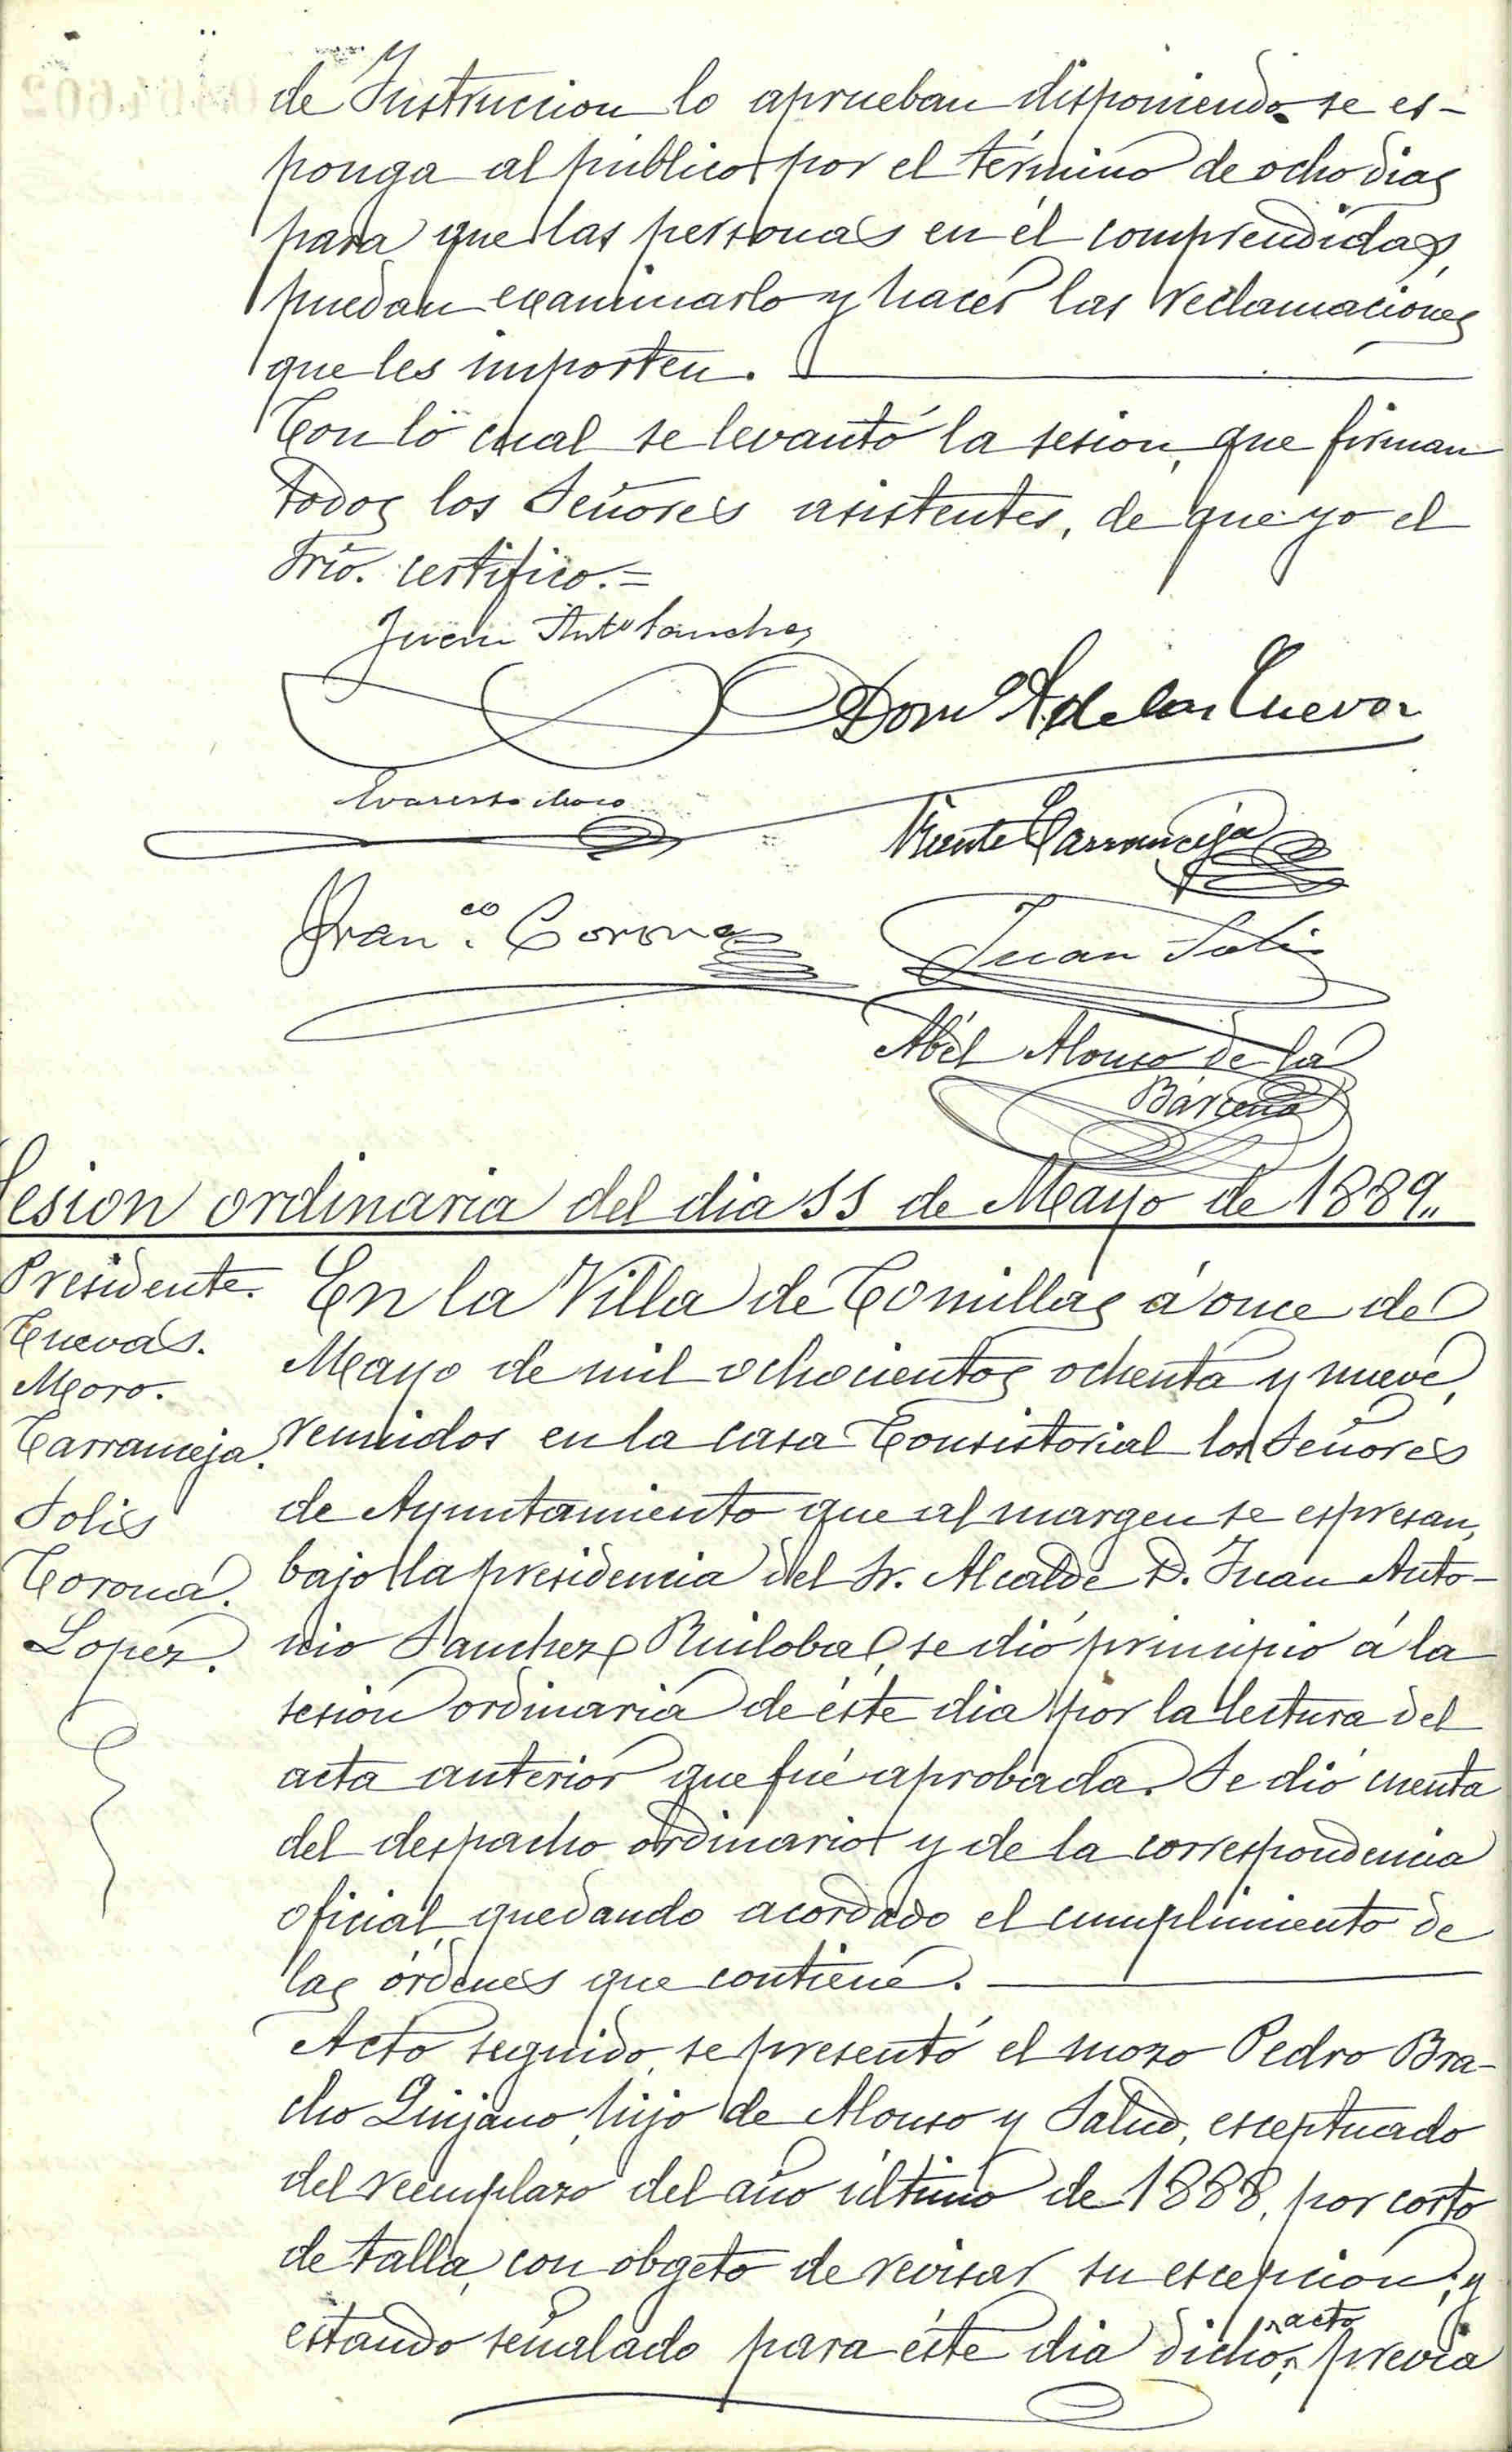 de Instruccion lo aprueban disponiendo se es-
ponga al público por el término de ocho dias
para que las personas en él comprendidas,
puedan examinarlo y hacer las reclamaciones
que les importen.
Con lo cual se levantó la sesion, que firman
todos los Señores asistentes, de que yo el
Srio. certifico.=
Juan Antº Sanchez
Domº A de las Cuevas
Evaristo Moro
Vicente Carranceja
Franco. Corona
Juan Solis
Abél Alonso de la
Bárcena
Sesion ordinaria del dia 11 de Mayo de 1889"
Presidente.
Cuevas.
Moro.
Carranceja.
Solis
Corona.
Lopez.
En la Villa de Comillas á once de
Mayo de mil ochocientos ochenta y nueve,
reunidos en la casa Consistorial los Señores
de Ayuntamiento que al margen se espresan,
bajo la presidencia del Sr. Alcalde D. Juan Anto-
nio Sanchez Ruiloba, se dió principio á la
sesion ordinaria de éste dia por la lectura del
acta anterior que fué aprobada. Se dió cuenta
del despacho ordinario y de la correspondencia
oficial, quedando acordado el cumplimiento de
las órdenes que contiene.
Acto seguido, se presentó el mozo Pedro Bra-
cho Quijano, hijo de Alonso y Salud, esceptuado
del reemplazo del año último de 1888, por corto
de talla, con obgeto de revisar su escepcion; y
estando señalado para éste dia dicho acto, previa